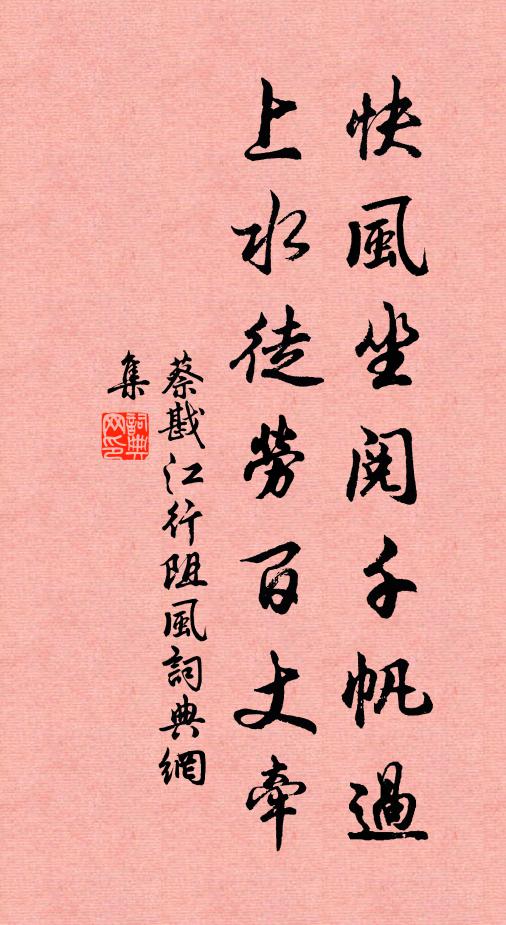 快風坐閱千帆過
上水徒勞百丈牽
蔡戡江行阻風詞典網
集
詞典网印